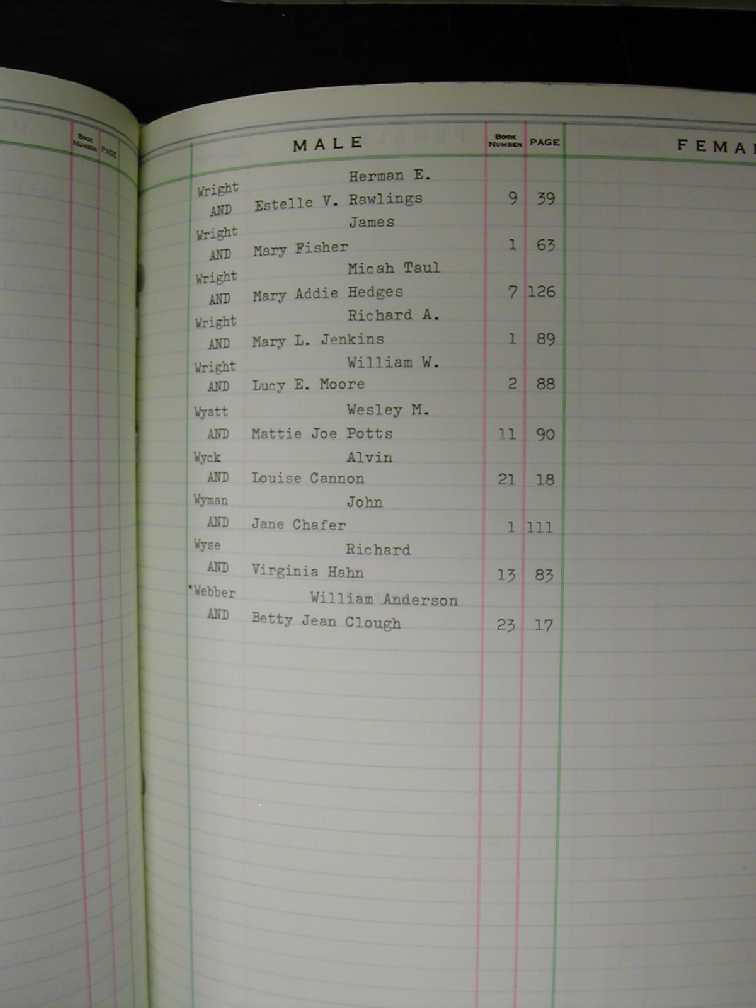 BOOK NUMBER PAGE
MALE BOOK NUMBER PAGE
Wright Herman E.
AND Estelle V. Rawlings 9 39
Wright James
AND Mary Fisher 1 63
Wright Micah Taul
AND Mary Addie Hedges 7 126
Wright Richard A.
AND Mary L. Jenkins 1 89
Wright William W.
AND Lucy E. Moore 2 88
Wyatt Wesley M.
AND Mattie Joe Potts 11 90
Wyck Alvin
AND Louise Cannon 21 18
Wyman John
AND Jane Chafer 1 111
Wyse Richard
AND Virginia Hahn 13 83
Webber William Anderson
AND Betty Jean Clough 23 17